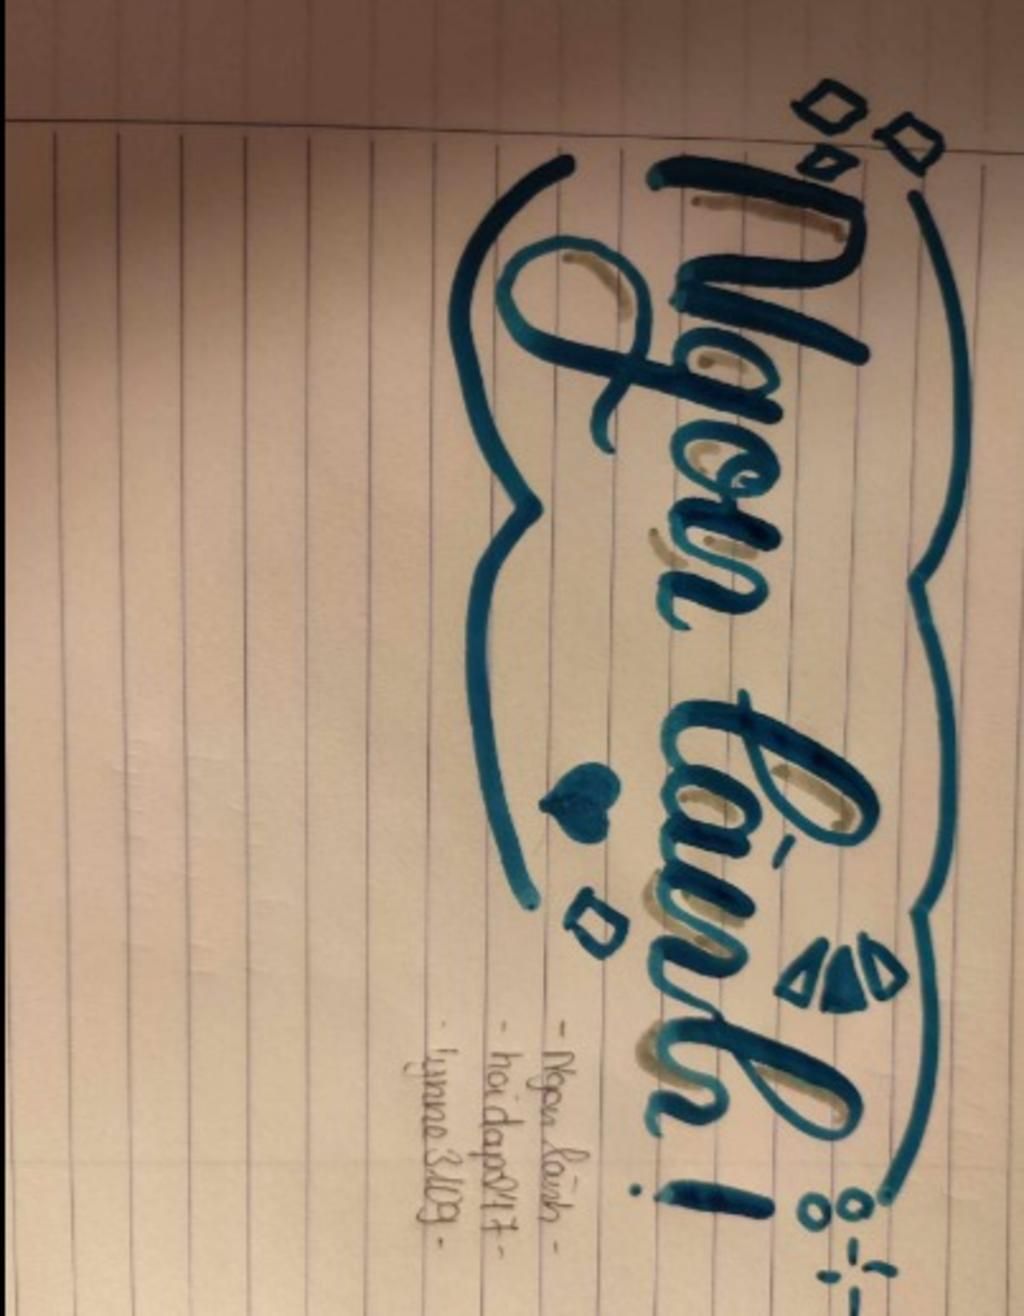 Ngon lành !
- Ngon lành -
- hoidap247 -
- lynne3109 -